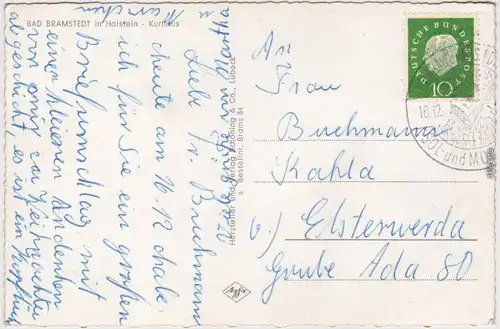 BAD BRAMSTEDT in Holstein - Kurhaus
Liebe Fr. Buchmann
heute am 16-12 habe
ich für Sie ein großen
Briefumschlag mit
einen kleinen Andenken
von mir zu Weihnachten
abgeschickt, es ist ein
Hersteller und Verlag Schöning & Co., Lübeck
Bestellnr. Brams 84
An
Frau
Buchmann
Kahla
b/ Elsterwerda
Grube Ada 80
DEUTSCHE BUNDESPOST
10
16.12.
SOL- und MOOR